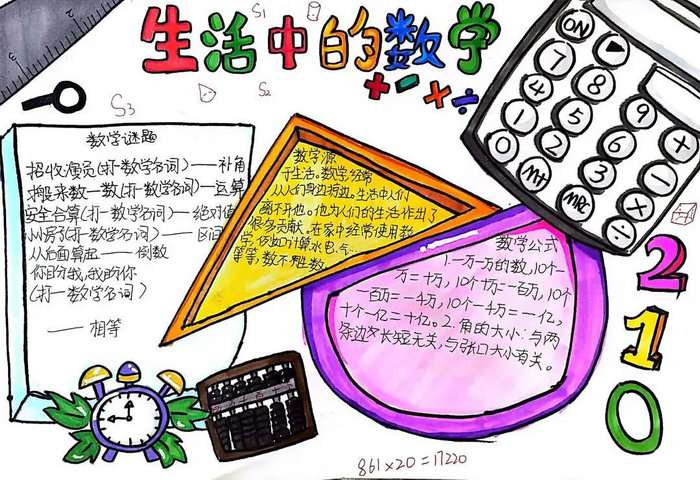 生活中的数学
+ - × ÷
S1
S2
S3
数学谜题
招收演员(打一数学名词)——补角
搬来数一数(打一数学名词)——运算
安全合算(打一数学名词)——绝对值
小小房子(打一数学名词)——区间
从后面算起——倒数
你盼我,我盼你
(打一数学名词)
——相等
数学源
于生活。数学经常
从人们身边掠过。生活中人们
离不开他。他为人们的生活作出了
很多贡献。在家中经常使用数
学,例如计算水、电、气……
等等,数不胜数
数学公式
1.一万一万的数,10个一
万=十万,10个十万=一百万,10个
一百万=一千万,10个一千万=一亿,
十个一亿=十亿。2.角的大小:与两
条边的长短无关,与张口大小有关。
ON
7 8 9 +
4 5 6 -
1 2 3 ×
0 M+ MRC ÷
2
1
0
861×20=17220